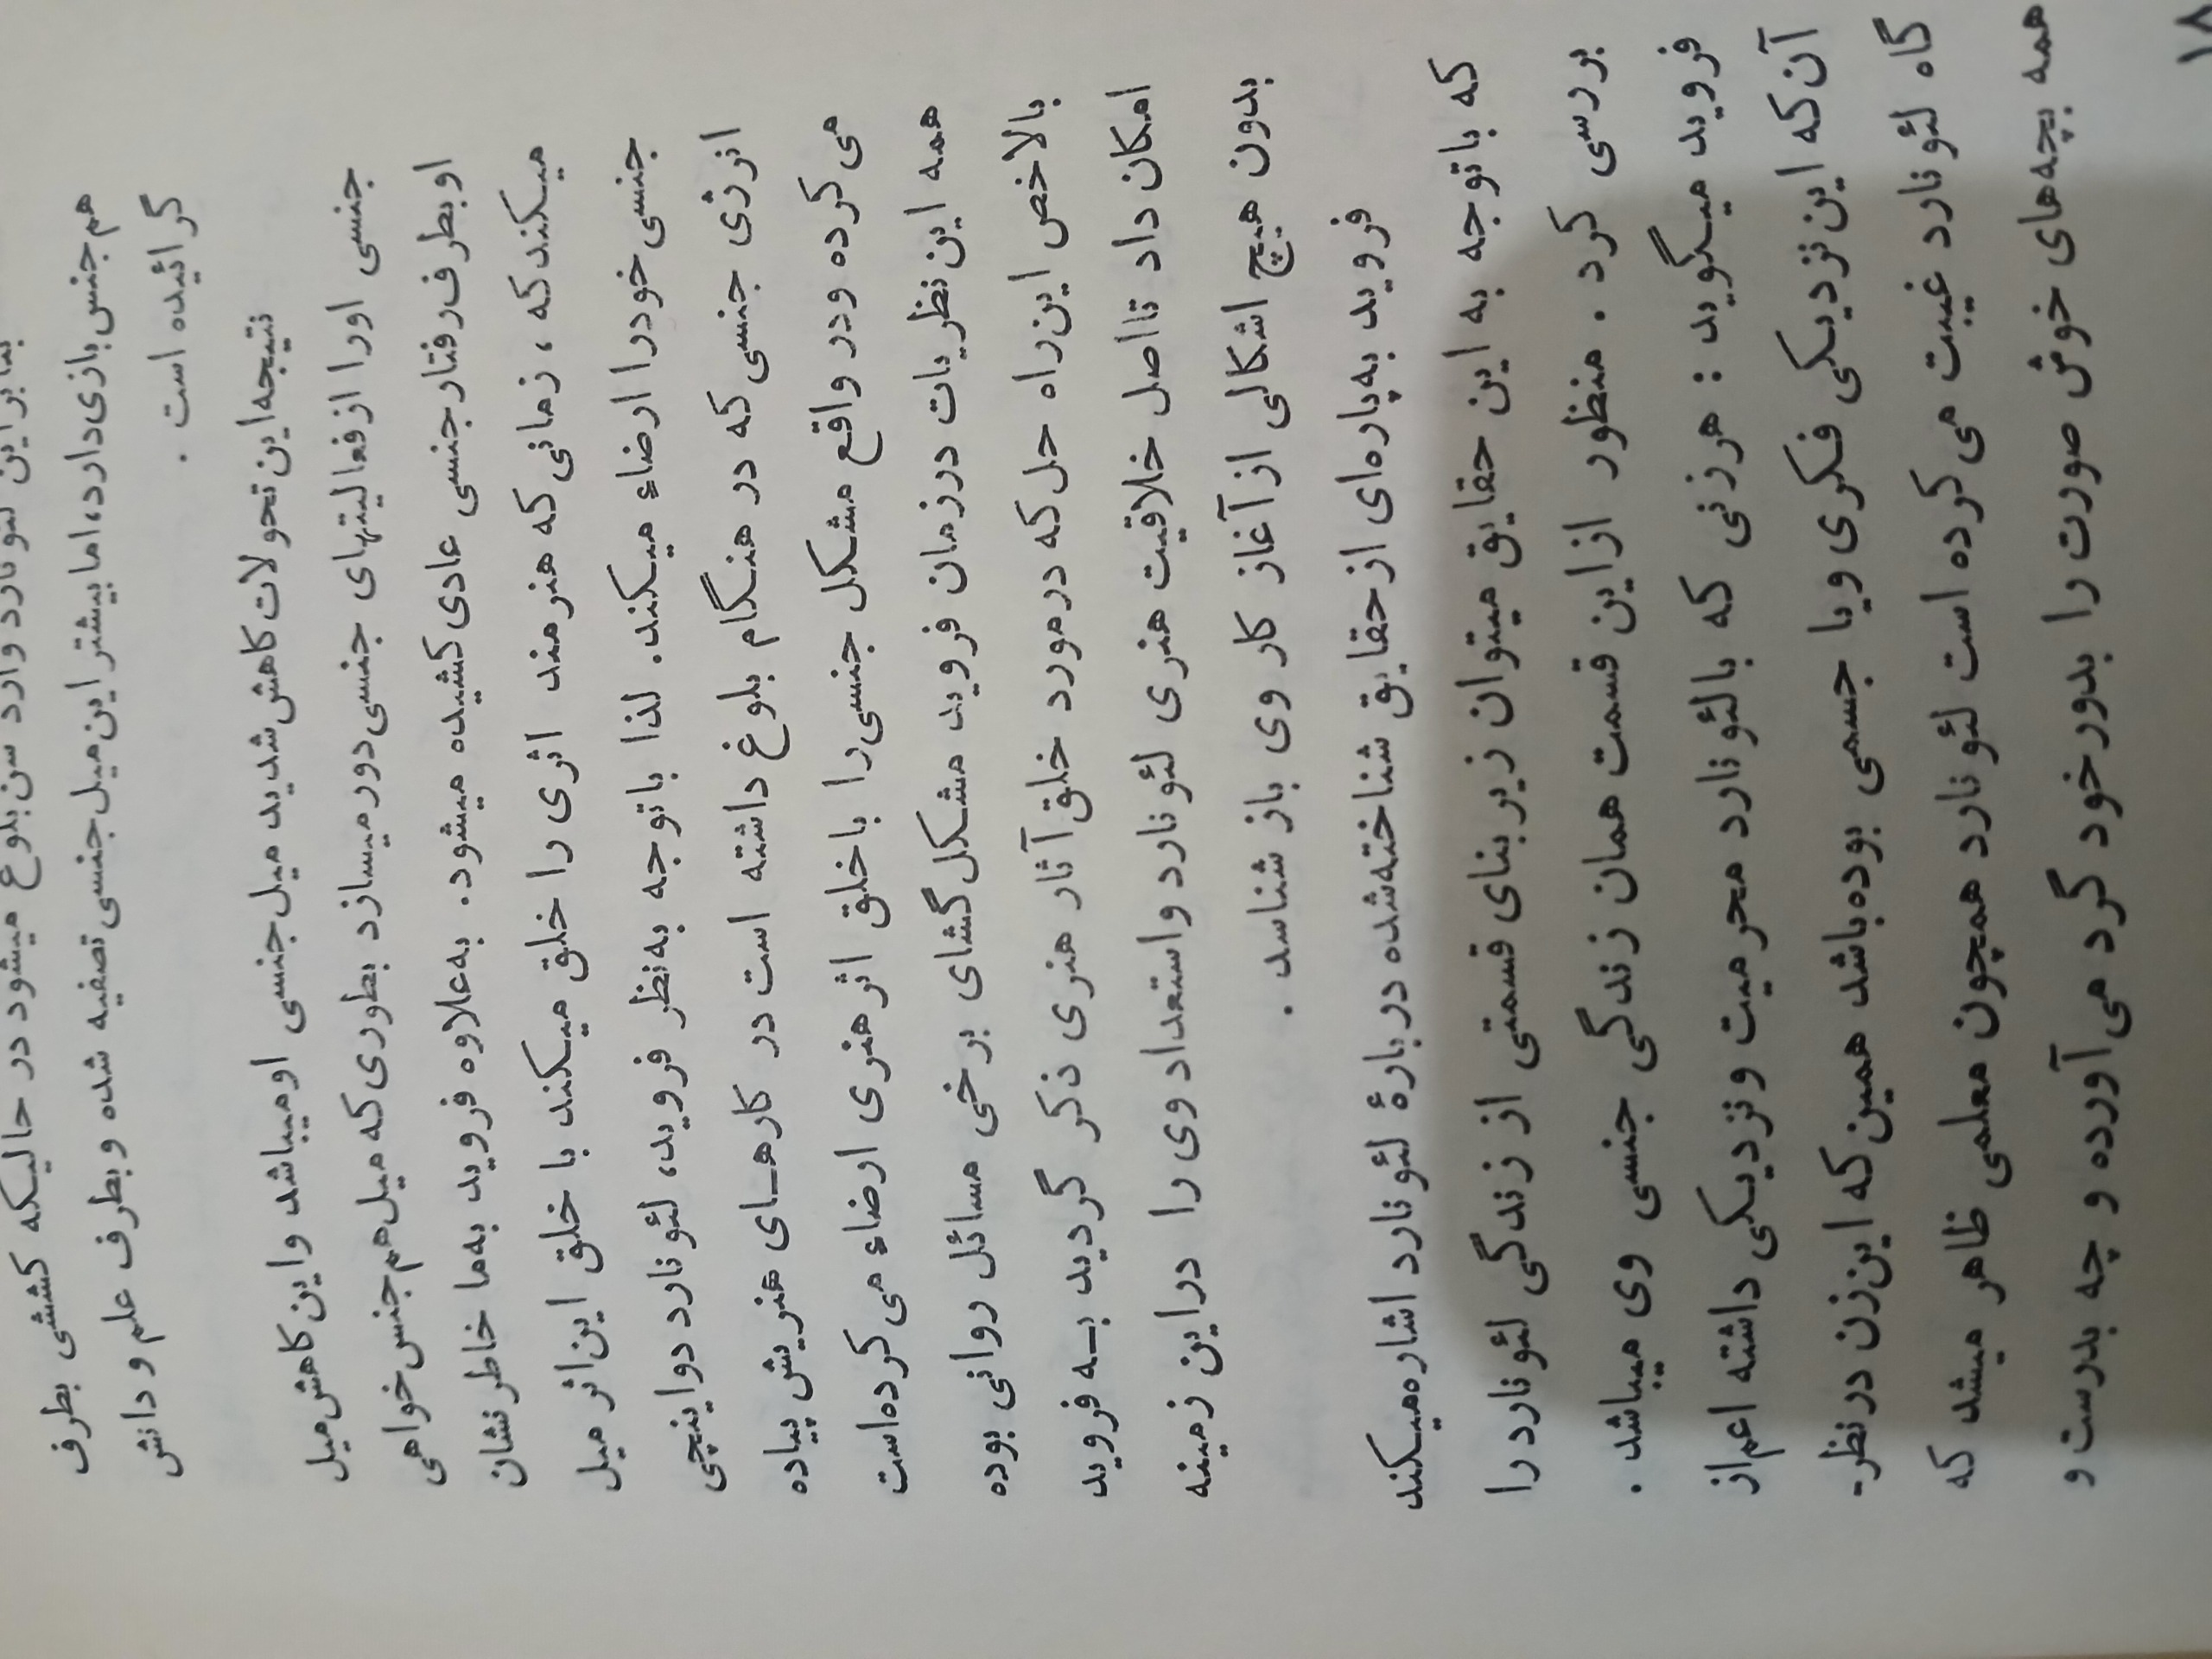 بنابراین لئونارد وارد سن بلوغ میشود در حالیکه کششی بطرف
هم‌جنس بازی دارد، اما بیشتر این میل جنسی تصفیه شده و بطرف علم و دانش
گرائیده است .
نتیجه این تحولات کاهش شدید میل جنسی او میباشد و این کاهش میل
جنسی او را از فعالیتهای جنسی دور میسازد بطوری که میل هم جنس خواهی
او بطرف رفتار جنسی عادی کشیده میشود. به علاوه فروید به‌ما خاطر نشان
میکند که ، زمانی که هنرمند اثری را خلق میکند با خلق این اثر میل
جنسی خود را ارضاء میکند. لذا با توجه به نظر فروید، لئونارد دواینچی
انرژی جنسی که در هنگام بلوغ داشته است در کارهـای هنریش پیاده
می کرده و در واقع مشکل جنسی را با خلق اثر هنری ارضاء می کرده است
همه این نظریات در زمان فروید مشکل گشای برخی مسائل روانی بوده
بالاخص این راه حل که در مورد خلق آثار هنری ذکر گردید بـه فروید
امکان داد تا اصل خلاقیت هنری لئونارد و استعداد وی را در این زمینه
بدون هیچ اشکالی از آغاز کار وی باز شناسد .
فروید به پاره‌ای از حقایق شناخته شده در بارهٔ لئونارد اشاره میکند
که با توجه به این حقایق میتوان زیربنای قسمتی از زندگی لئونارد را
بررسی کرد . منظور از این قسمت همان زندگی جنسی وی میباشد .
فروید میگوید : هر زنی که با لئونارد محرمیت و نزدیکی داشته اعم از
آن که این نزدیکی فکری و یا جسمی بوده باشد همین که این زن در نظر-
گاه لئونارد غیبت می کرده است لئونارد همچون معلمی ظاهر میشد که
همه بچه‌های خوش صورت را بدور خود گرد می آورده و چه بدرست و
۱۸